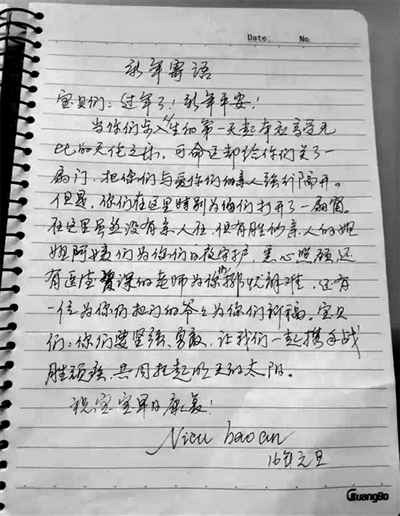 Date: No.
新年寄语
宝贝们:过年了!新年平安!
当你们步入人生的第一天起本应享受无
比的天伦之乐,可命运却给你们关了一
扇门,把你们与爱你们的亲人强行隔开。
但是,你们在这里特别为你们打开了一扇窗。
在这里虽然没有亲人在,但有胜似亲人的姐
姐阿姨们为你们日夜守护,悉心照顾,还
有医德资深的老师为你们排忧解难,还有
一位为你们把门的爷爷为你们祈福。宝贝
们:你们要坚强、勇敢,让我们一起携手战
胜顽疾,共同托起明天的太阳。
祝宝宝早日康复!
Nieu baoan
16年元旦
GuangBo